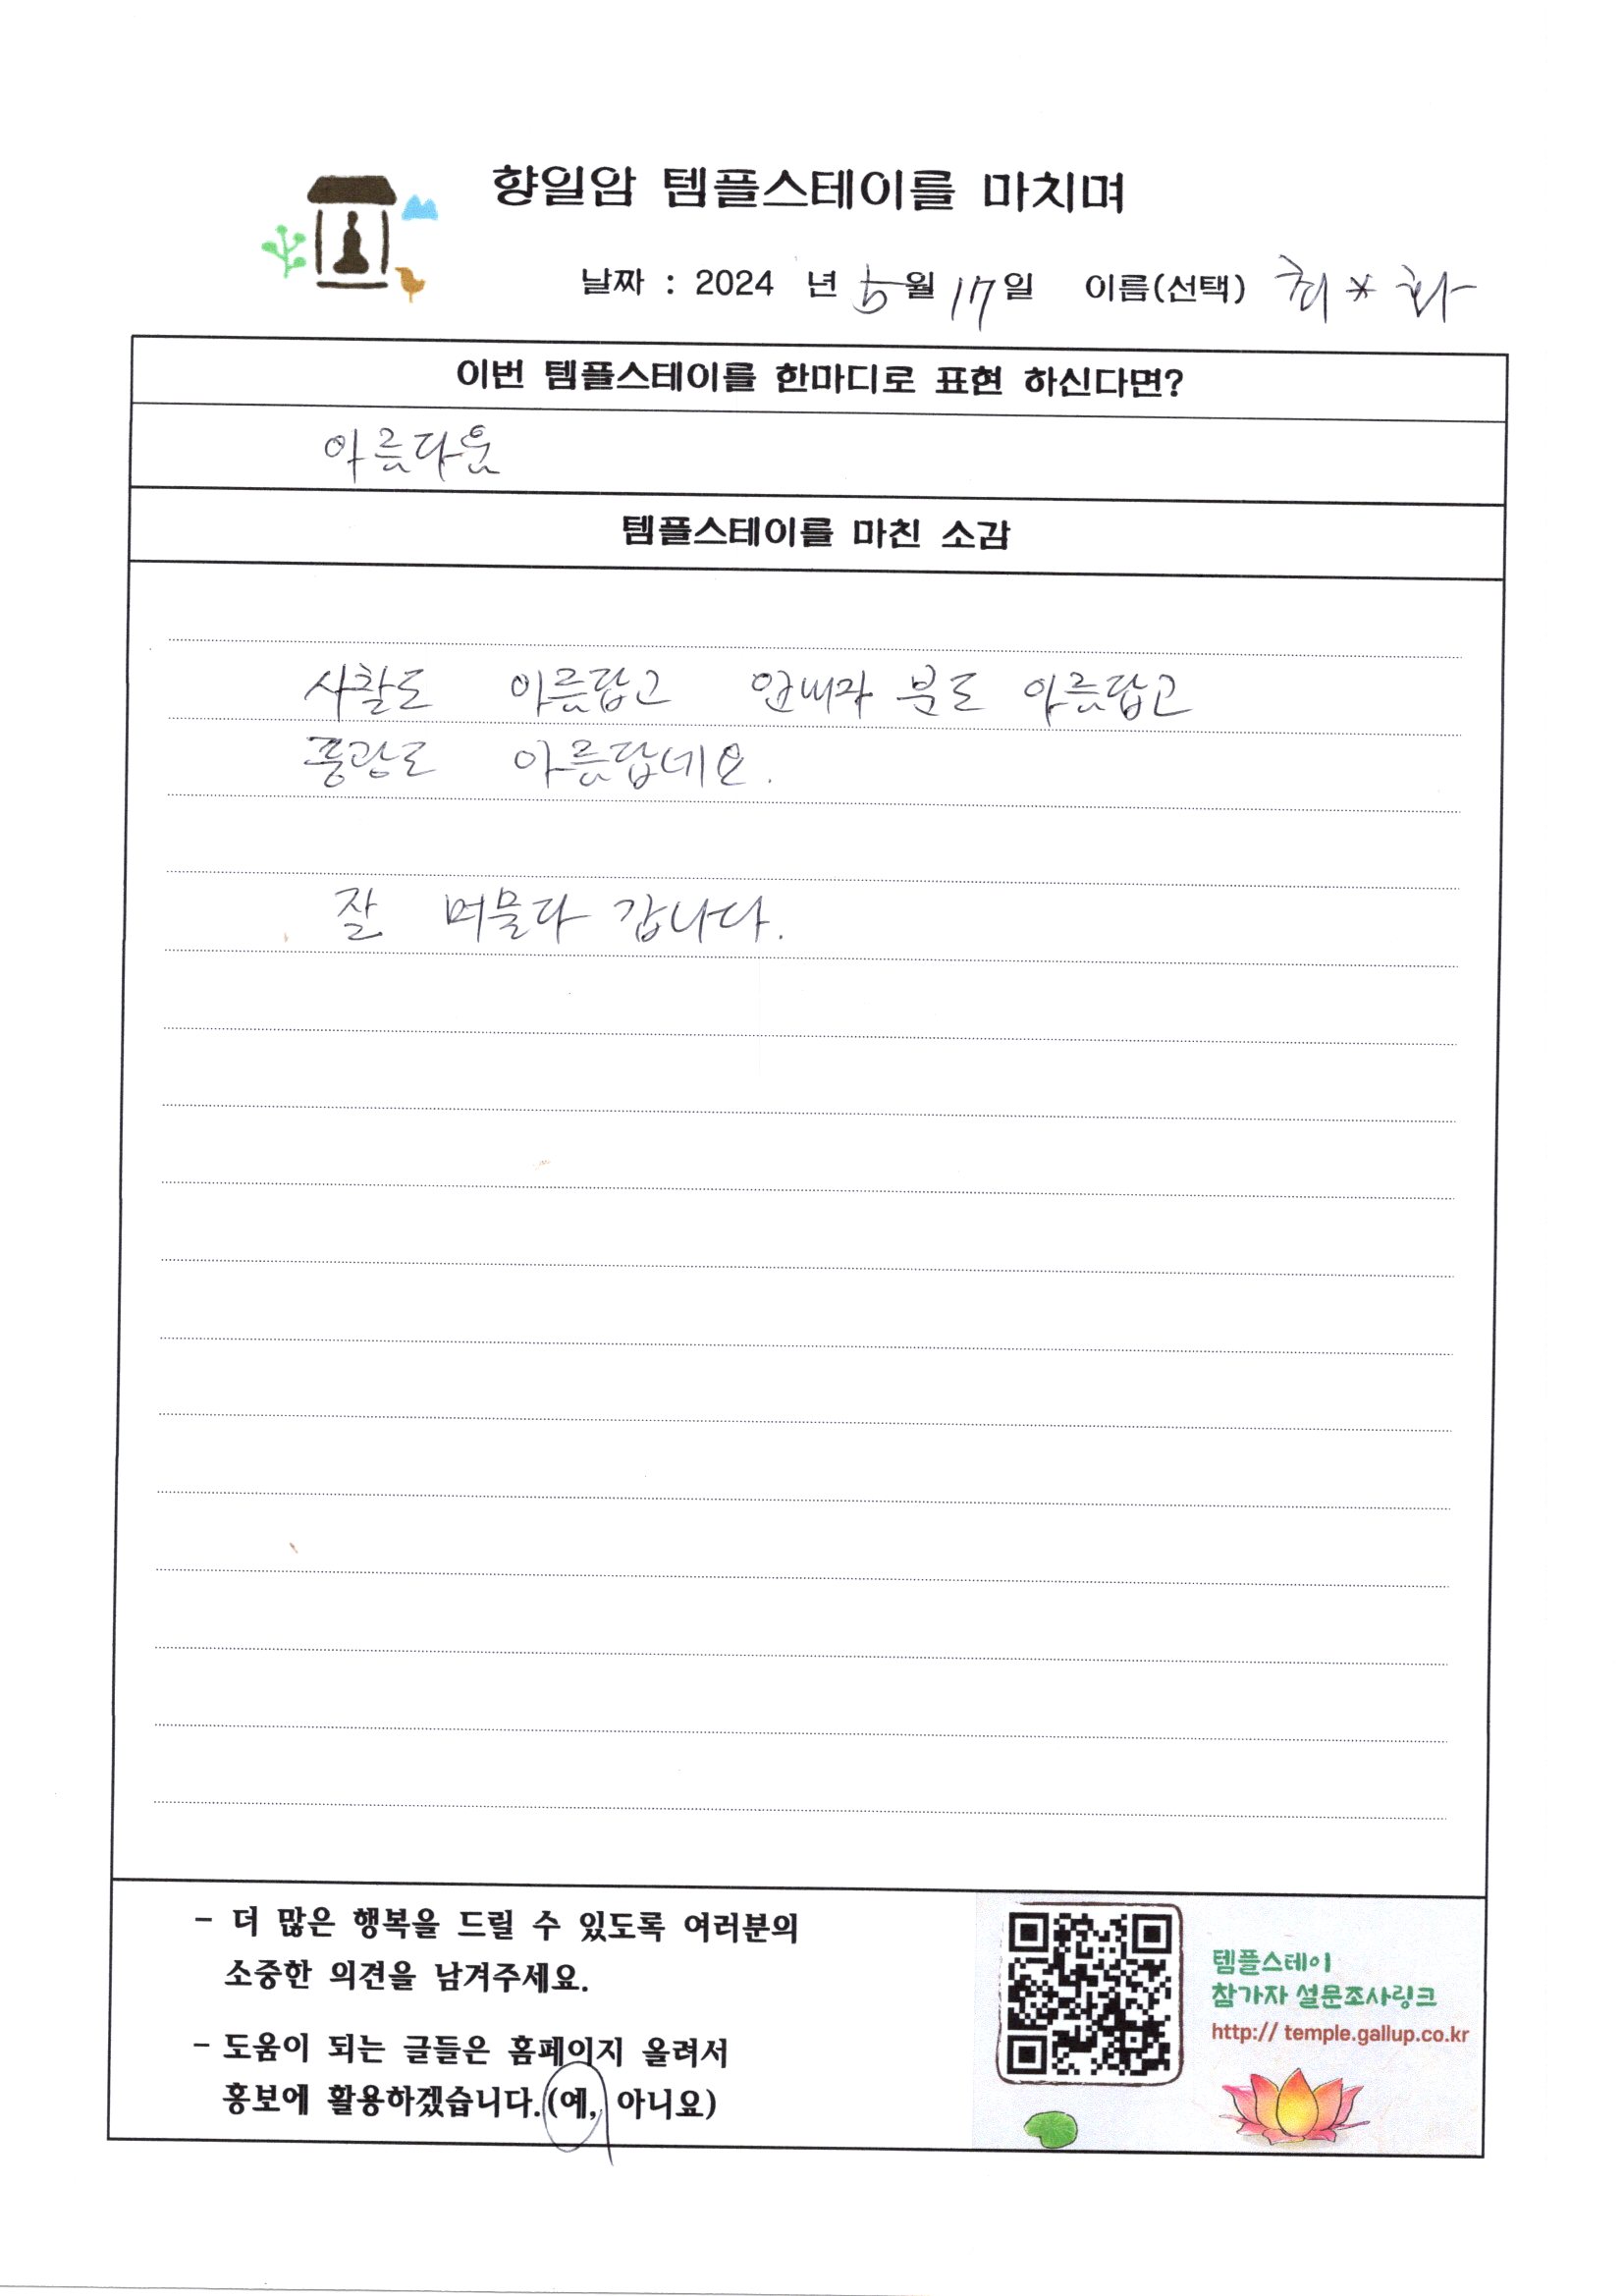 향일암 템플스테이를 마치며
날짜 : 2024 년 5월 17일 이름(선택) 최*화
이번 템플스테이를 한마디로 표현 하신다면?
아름다움
템플스테이를 마친 소감
사찰도 아름답고 안내자 분도 아름답고
풍광도 아름답네요.
잘 머물다 갑니다.
- 더 많은 행복을 드릴 수 있도록 여러분의
소중한 의견을 남겨주세요.
- 도움이 되는 글들은 홈페이지 올려서
홍보에 활용하겠습니다.(예, 아니요)
템플스테이
참가자 설문조사링크
http:// temple.gallup.co.kr